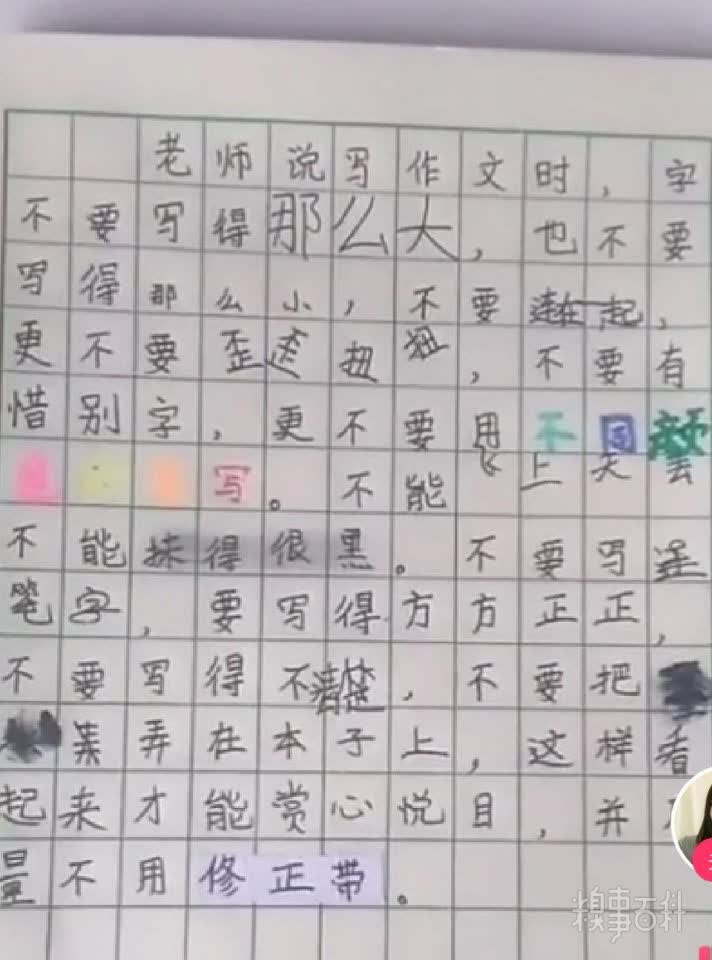 老师说写作文时，字
不要写得那么大，也不要
写得那么小，不要连在一起，
更不要歪歪扭扭，不要有
惜别字，更不要用不同颜
色写。不能飞上天去
不能抹得很黑。不要写连
笔字，要写得方方正正，
不要写得不清楚，不要把
弄在本子上，这样看
起来才能赏心悦目，并
量不用修正带。
糗事百科